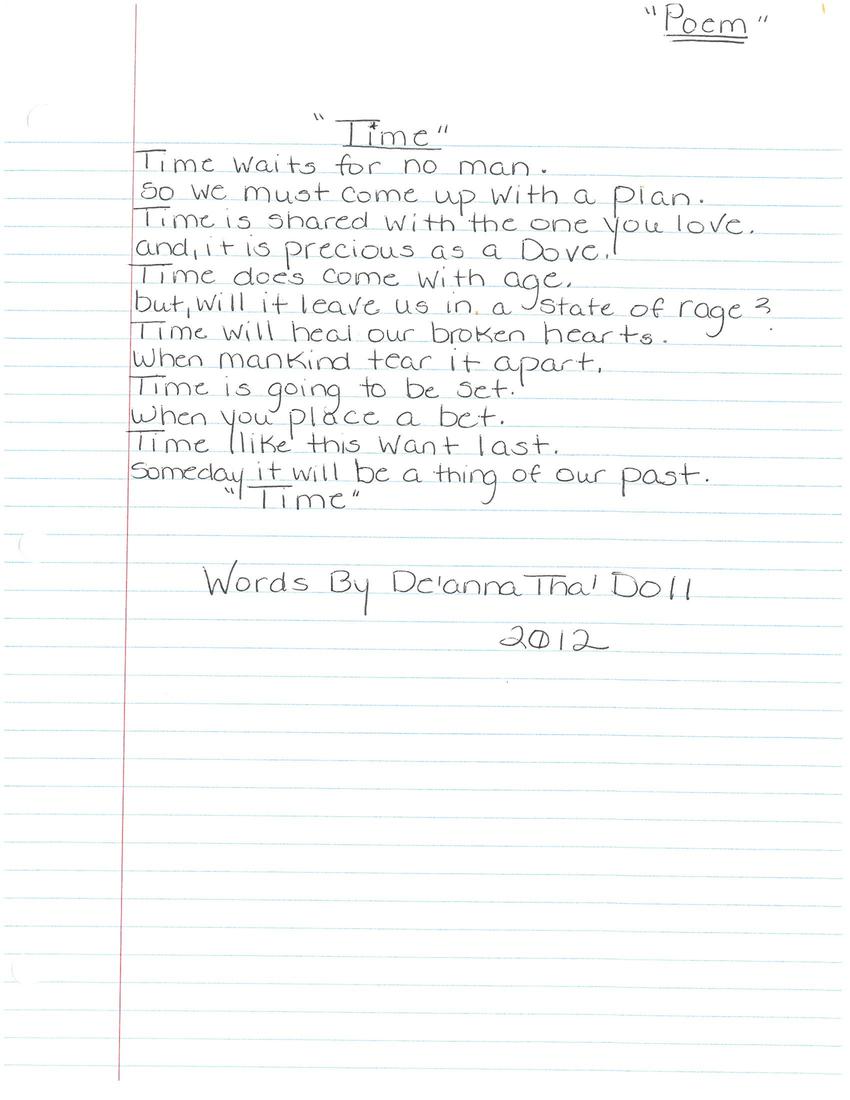 "Poem"
"Time"
Time waits for no man.
So we must come up with a plan.
Time is shared with the one you love.
and, it is precious as a Dove.
Time does come with age.
but, will it leave us in a state of rage?
Time will heal our broken hearts.
When mankind tear it apart.
Time is going to be set.
When you place a bet.
Time like this want last.
Someday it will be a thing of our past.
"Time"
Words By De'anna Tha' Doll
2012